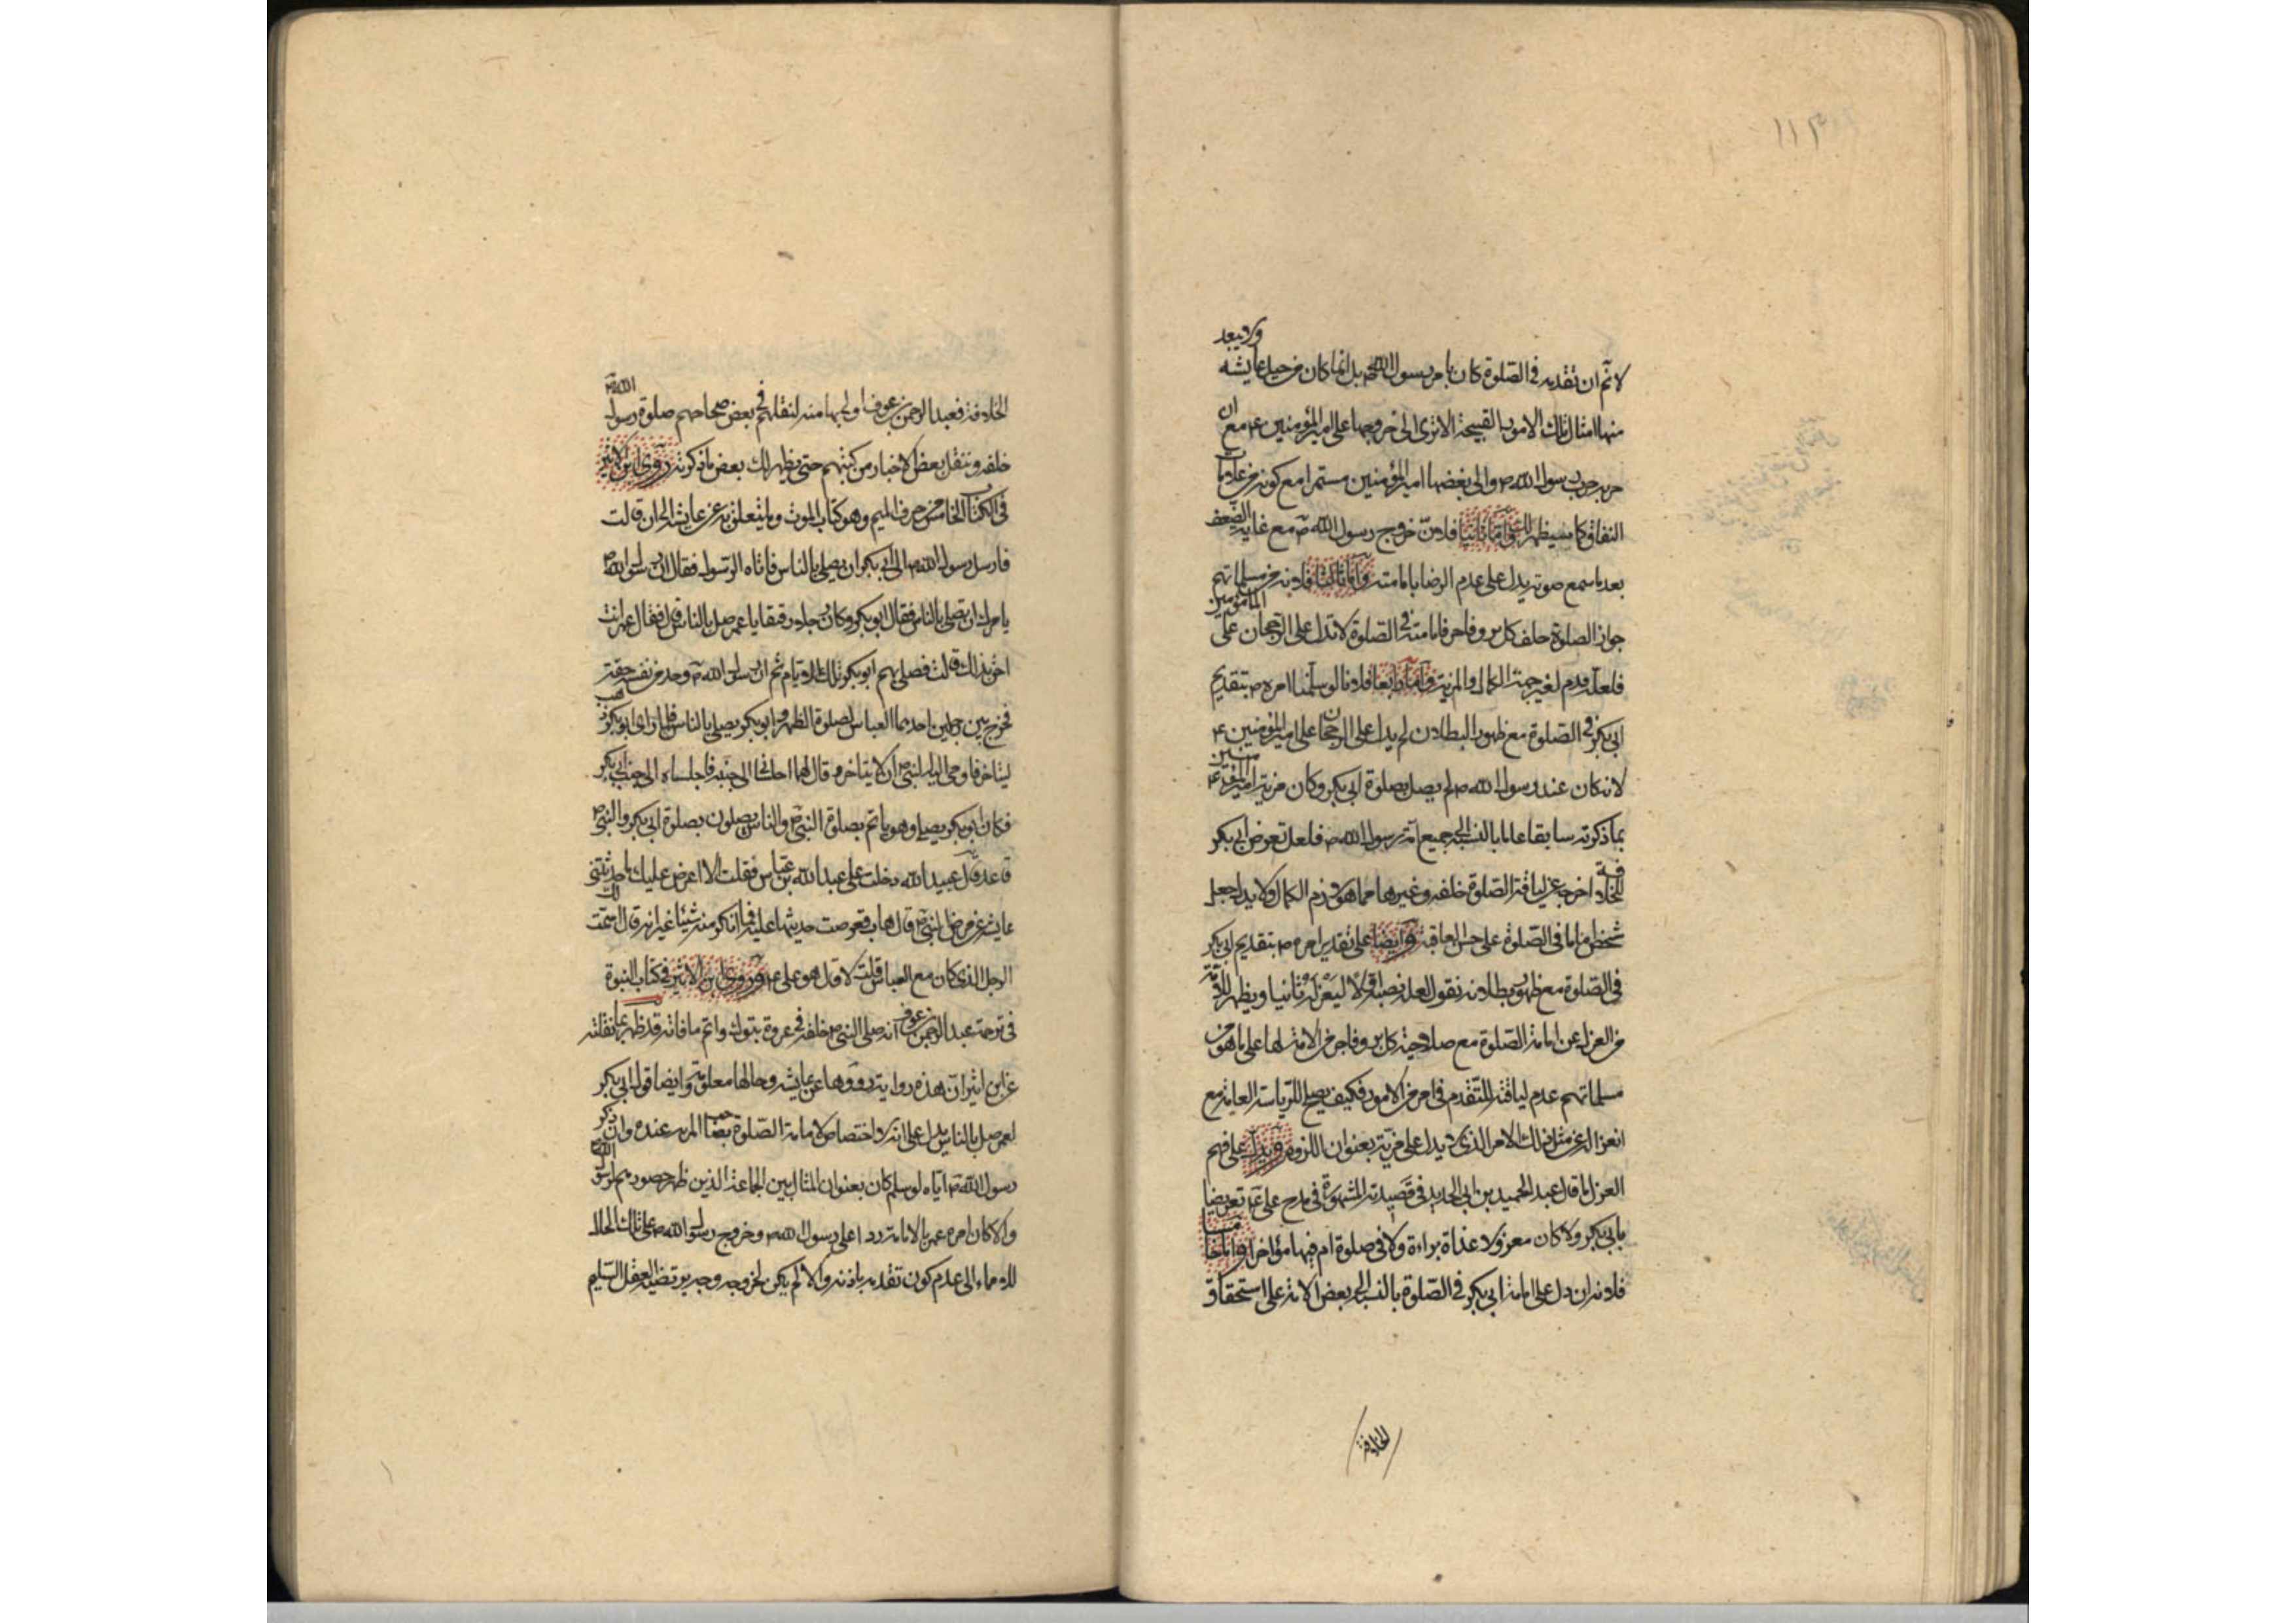 ١١٣
ولا يبعد
لانم ان تقديمه فى الصلوة كان بامر رسول الله ص بل انما كان من حيل عايشه
منها امثال تلك الامور القبيحة الا ترى الى خروجها على امير المؤمنين ع مع ان
حربه حرب رسول الله ص والى بغضها امير المؤمنين مستمرا مع كونه من علامات
النفاق كما سيظهر لك واما ثانيا فلان خروج رسول الله ص مع غاية الضعف
بعد ما سمع صوته يدل على عدم الرضا بامامته واما ثالثا فلانه من مسلماتهم
جواز الصلوة خلف كل بر وفاجر فامامته فى الصلوة لا تدل على الرجحان على المأمومين
فلعله قدم لغير جهة الكمال والمزية واما رابعا فلانا لو سلمنا امره ص بتقديم
ابى بكر فى الصلوة مع ظهور البطلان لم يدل على الرجحان على امير المؤمنين ع
لانه كان عند رسول الله ص لم يصل بصلوة ابى بكر وكان مزية امير المؤمنين ع
بما ذكرته سابقا عاما بالنسبة الى جميع امة رسول الله ص فلعل تعرض ابى بكر
للخلافة اخرجه عن لياقة الصلوة خلفه وغيرها مما هو لازم الكمال ولا يدل جعل
شخص اماما فى الصلوة على حسن العاقبة وايضا على تقدير امره ص بتقديم ابى بكر
فى الصلوة مع ظهور بطلانه نقول لعله نصبه اولا ليعزله ثانيا ويظهر للامة
من العزل عن امامة الصلوة مع صلاحية كل بر وفاجر من الامة لها على ما هو من
مسلماتهم عدم لياقته للتقدم فى امر من الامور فكيف يصلح للرياسة العامة مع
انعزاله عن مثل ذلك الامر الذى لا يدل على مزية بعنوان اللزوم ويدل على فهم
العزل ما قال عبد الحميد بن ابى الحديد فى قصيدته المشهورة فى مدح على ع تعريضا
بابى بكر ولا كان معزولا غداة براءة ولا فى صلوة ام فيها مؤخرا واما خامسا
فلانه ان دل على امامة ابى بكر فى الصلوة بالنسبة الى بعض الامة على استحقاق
الخلافة
الخلافة فعبد الرحمن بن عوف اولى بها منه لنقلهم فى بعض صحاحهم صلوة رسول الله ص
خلفه وننقل بعض الاخبار من كتبهم حتى يظهر لك بعض ما ذكرته روى ابن الاثير
فى الكتاب الخامس من حرف الميم وهو كتاب الموت وما يتعلق به عن عايشه الى ان قالت
فارسل رسول الله ص الى ابى بكر ان يصلى بالناس فاتاه الرسول فقال ان رسول الله ص
يامرك ان تصلى بالناس فقال ابو بكر وكان رجلا رقيقا يا عمر صل بالناس قال فقال عمر انت
احق بذلك قالت فصلى بهم ابو بكر تلك الايام ثم ان رسول الله ص وجد من نفسه خفة
فخرج بين رجلين احدهما العباس لصلوة الظهر وابو بكر يصلى بالناس فلما راى ابو بكر ذهب
ليتاخر فاومى اليه النبى ص ان لا يتاخر وقال لهما اجلسانى الى جنبه فاجلساه الى جنب ابى بكر
فكان ابو بكر يصلى وهو ياتم بصلوة النبى ص والناس يصلون بصلوة ابى بكر والنبى ص
قاعد قال عبيد الله دخلت على عبد الله بن عباس فقلت الا اعرض عليك ما حدثتنى
عايشه عن مرض النبى ص قال هات فعرضت حديثها عليه فما انكر منه شيئا غير انه قال اسمت لك
الرجل الذى كان مع العباس قلت لا قال هو على ع وروى ابن الاثير فى كتاب النبوة
فى ترجمة عبد الرحمن بن عوف انه صلى النبى ص خلفه فى غزوة تبوك واتم ما فاته قد ظهر بما نقلته
عن ابن اثير ان هذه رواية رووها عن عايشه وحالها معلومة وايضا قول ابى بكر
لعمر صل بالناس يدل على انه لا اختصاص لامامة الصلوة بصاحب المزية عنده وان ذكر
رسول الله ص اياه لو سلم كان بعنوان المثال بين الجماعة الذين ظهر حضورهم لرسول الله ص
والا كان امره عمر بالامامة ردا على رسول الله ص وخروج رسول الله ص على تلك الحال
للايماء الى عدم كون تقديمه باذنه والا لم يكن لخروجه وجه يرتضيه العقل السليم